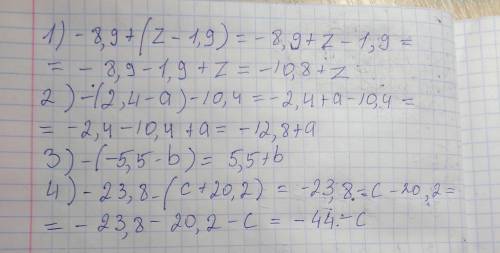 1) - 8,9 + (z - 1,9) = -8,9 + z - 1,9 =
= - 8,9 - 1,9 + z = -10,8 + z
2) -(2,4 - a) - 10,4 = -2,4 + a - 10,4 =
= -2,4 - 10,4 + a = -12,8 + a
3) -(-5,5 - b) = 5,5 + b
4) - 23,8 - (c + 20,2) = -23,8 - c - 20,2 =
= - 23,8 - 20,2 - c = - 44 - c